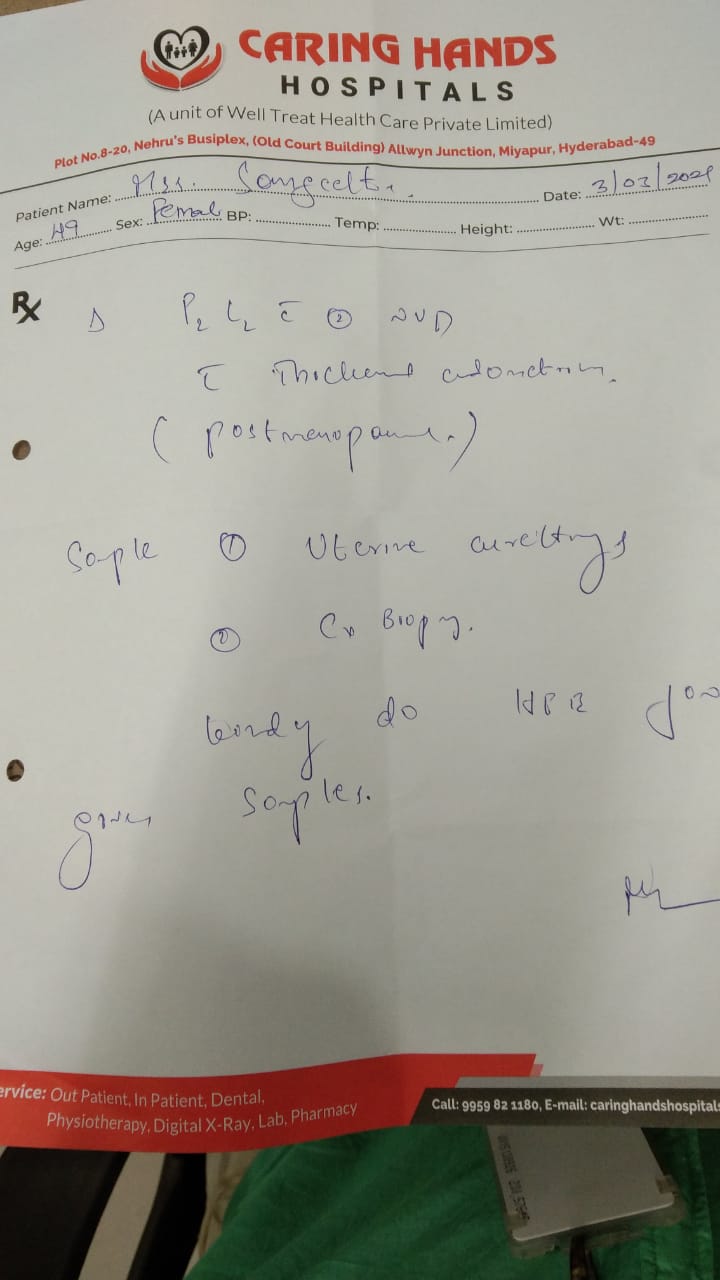 CARING HANDS
HOSPITALS
(A unit of Well Treat Health Care Private Limited)
Plot No.8-20, Nehru's Busiplex, (Old Court Building) Allwyn Junction, Miyapur, Hyderabad-49
Patient Name: Mrs. Sangeetha. Date: 3/03/2021
Age: 49 Sex: Female BP: Temp: Height: Wt:
Rx
Δ P2 L2 c̄ ② NVD
c̄ Thickened endometrium.
(postmenopausal)
Sample ① Uterine curettings
② Cx Biopsy.
kindy do HPE for
given samples.
ervice: Out Patient, In Patient, Dental,
Physiotherapy, Digital X-Ray, Lab, Pharmacy
Call: 9959 82 1180, E-mail: caringhandshospital